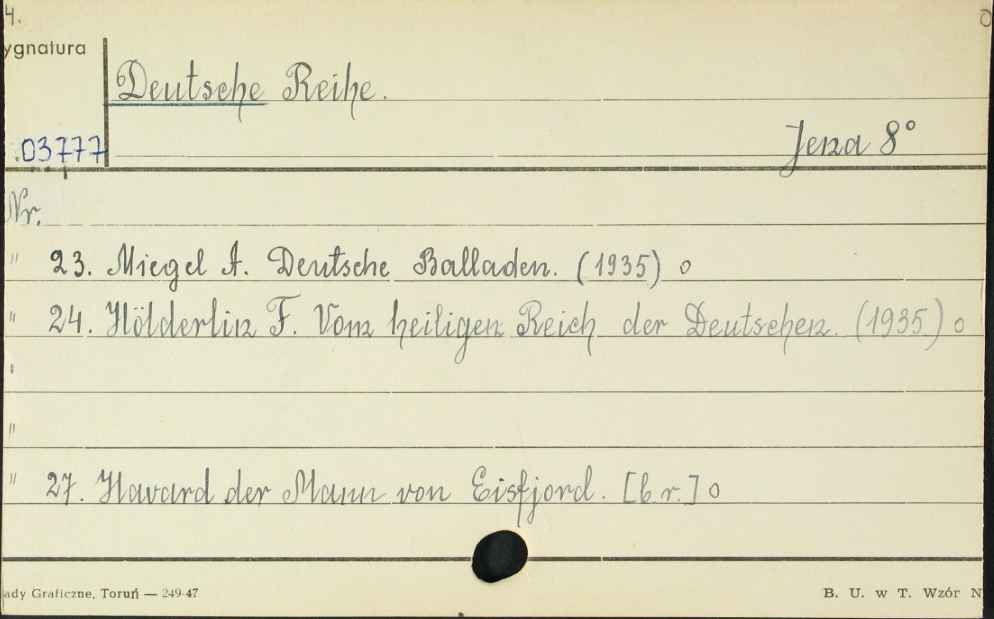 4.
ygnatura
Deutsche Reihe.
03777
Jena 8°
Nr.
" 23. Miegel A. Deutsche Balladen. (1935) o
" 24. Hölderlin F. Vom heiligen Reich der Deutschen. (1935) o
"
"
" 27. Havard der Mann von Eisfjord. [b.r.] o
ady Graficzne, Toruń — 249-47
B. U. w T. Wzór N